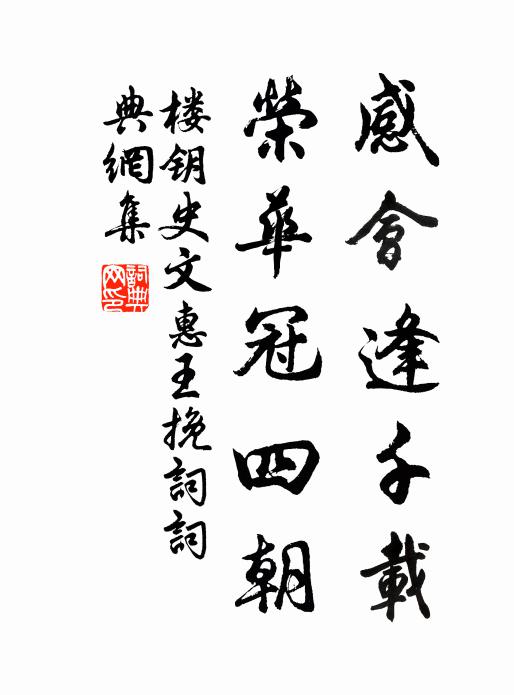 感會逢千載
榮華冠四朝
楼钥史文惠王挽詞詞
典網集
詞典
网印